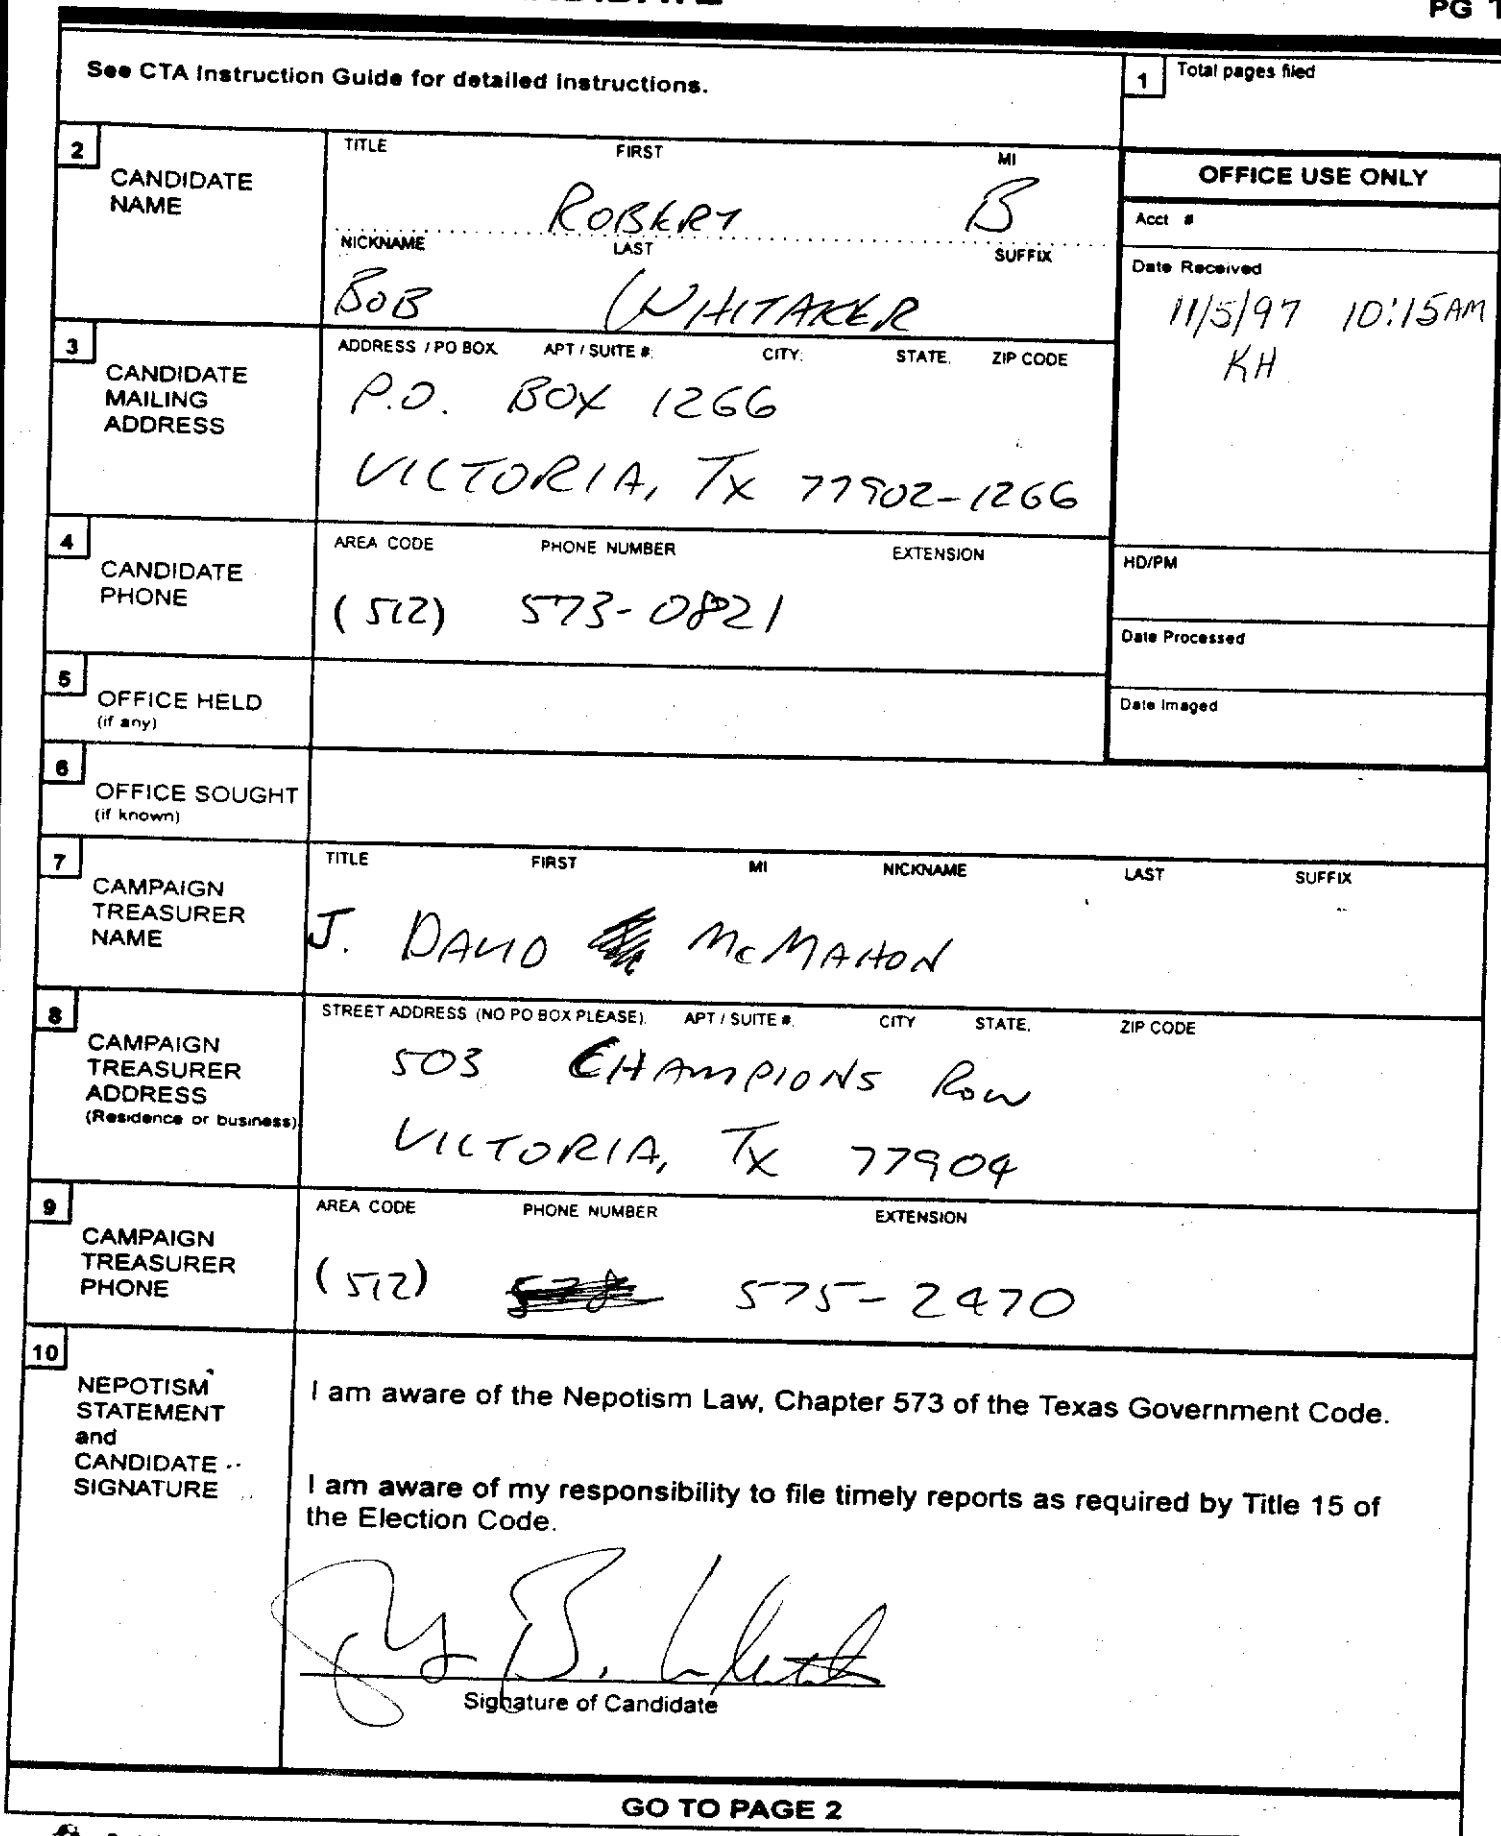 PG 1
See CTA Instruction Guide for detailed instructions.
1 Total pages filed
2 CANDIDATE NAME
TITLE FIRST MI
ROBERT B
NICKNAME LAST SUFFIX
BOB WHITAKER
OFFICE USE ONLY
Acct #
Date Received
11/5/97 10:15AM
KH
HD/PM
Date Processed
Date Imaged
3 CANDIDATE MAILING ADDRESS
ADDRESS / PO BOX APT / SUITE #: CITY: STATE. ZIP CODE
P.O. BOX 1266
VICTORIA, TX 77902-1266
4 CANDIDATE PHONE
AREA CODE PHONE NUMBER EXTENSION
(512) 573-0821
5 OFFICE HELD
(if any)
6 OFFICE SOUGHT
(if known)
7 CAMPAIGN TREASURER NAME
TITLE FIRST MI NICKNAME LAST SUFFIX
J. DAVID McMAHON
8 CAMPAIGN TREASURER ADDRESS
(Residence or business)
STREET ADDRESS (NO PO BOX PLEASE). APT / SUITE #. CITY STATE. ZIP CODE
503 CHAMPIONS ROW
VICTORIA, TX 77904
9 CAMPAIGN TREASURER PHONE
AREA CODE PHONE NUMBER EXTENSION
(512) 575-2470
10 NEPOTISM STATEMENT and CANDIDATE SIGNATURE
I am aware of the Nepotism Law, Chapter 573 of the Texas Government Code.
I am aware of my responsibility to file timely reports as required by Title 15 of
the Election Code.
Signature of Candidate
GO TO PAGE 2